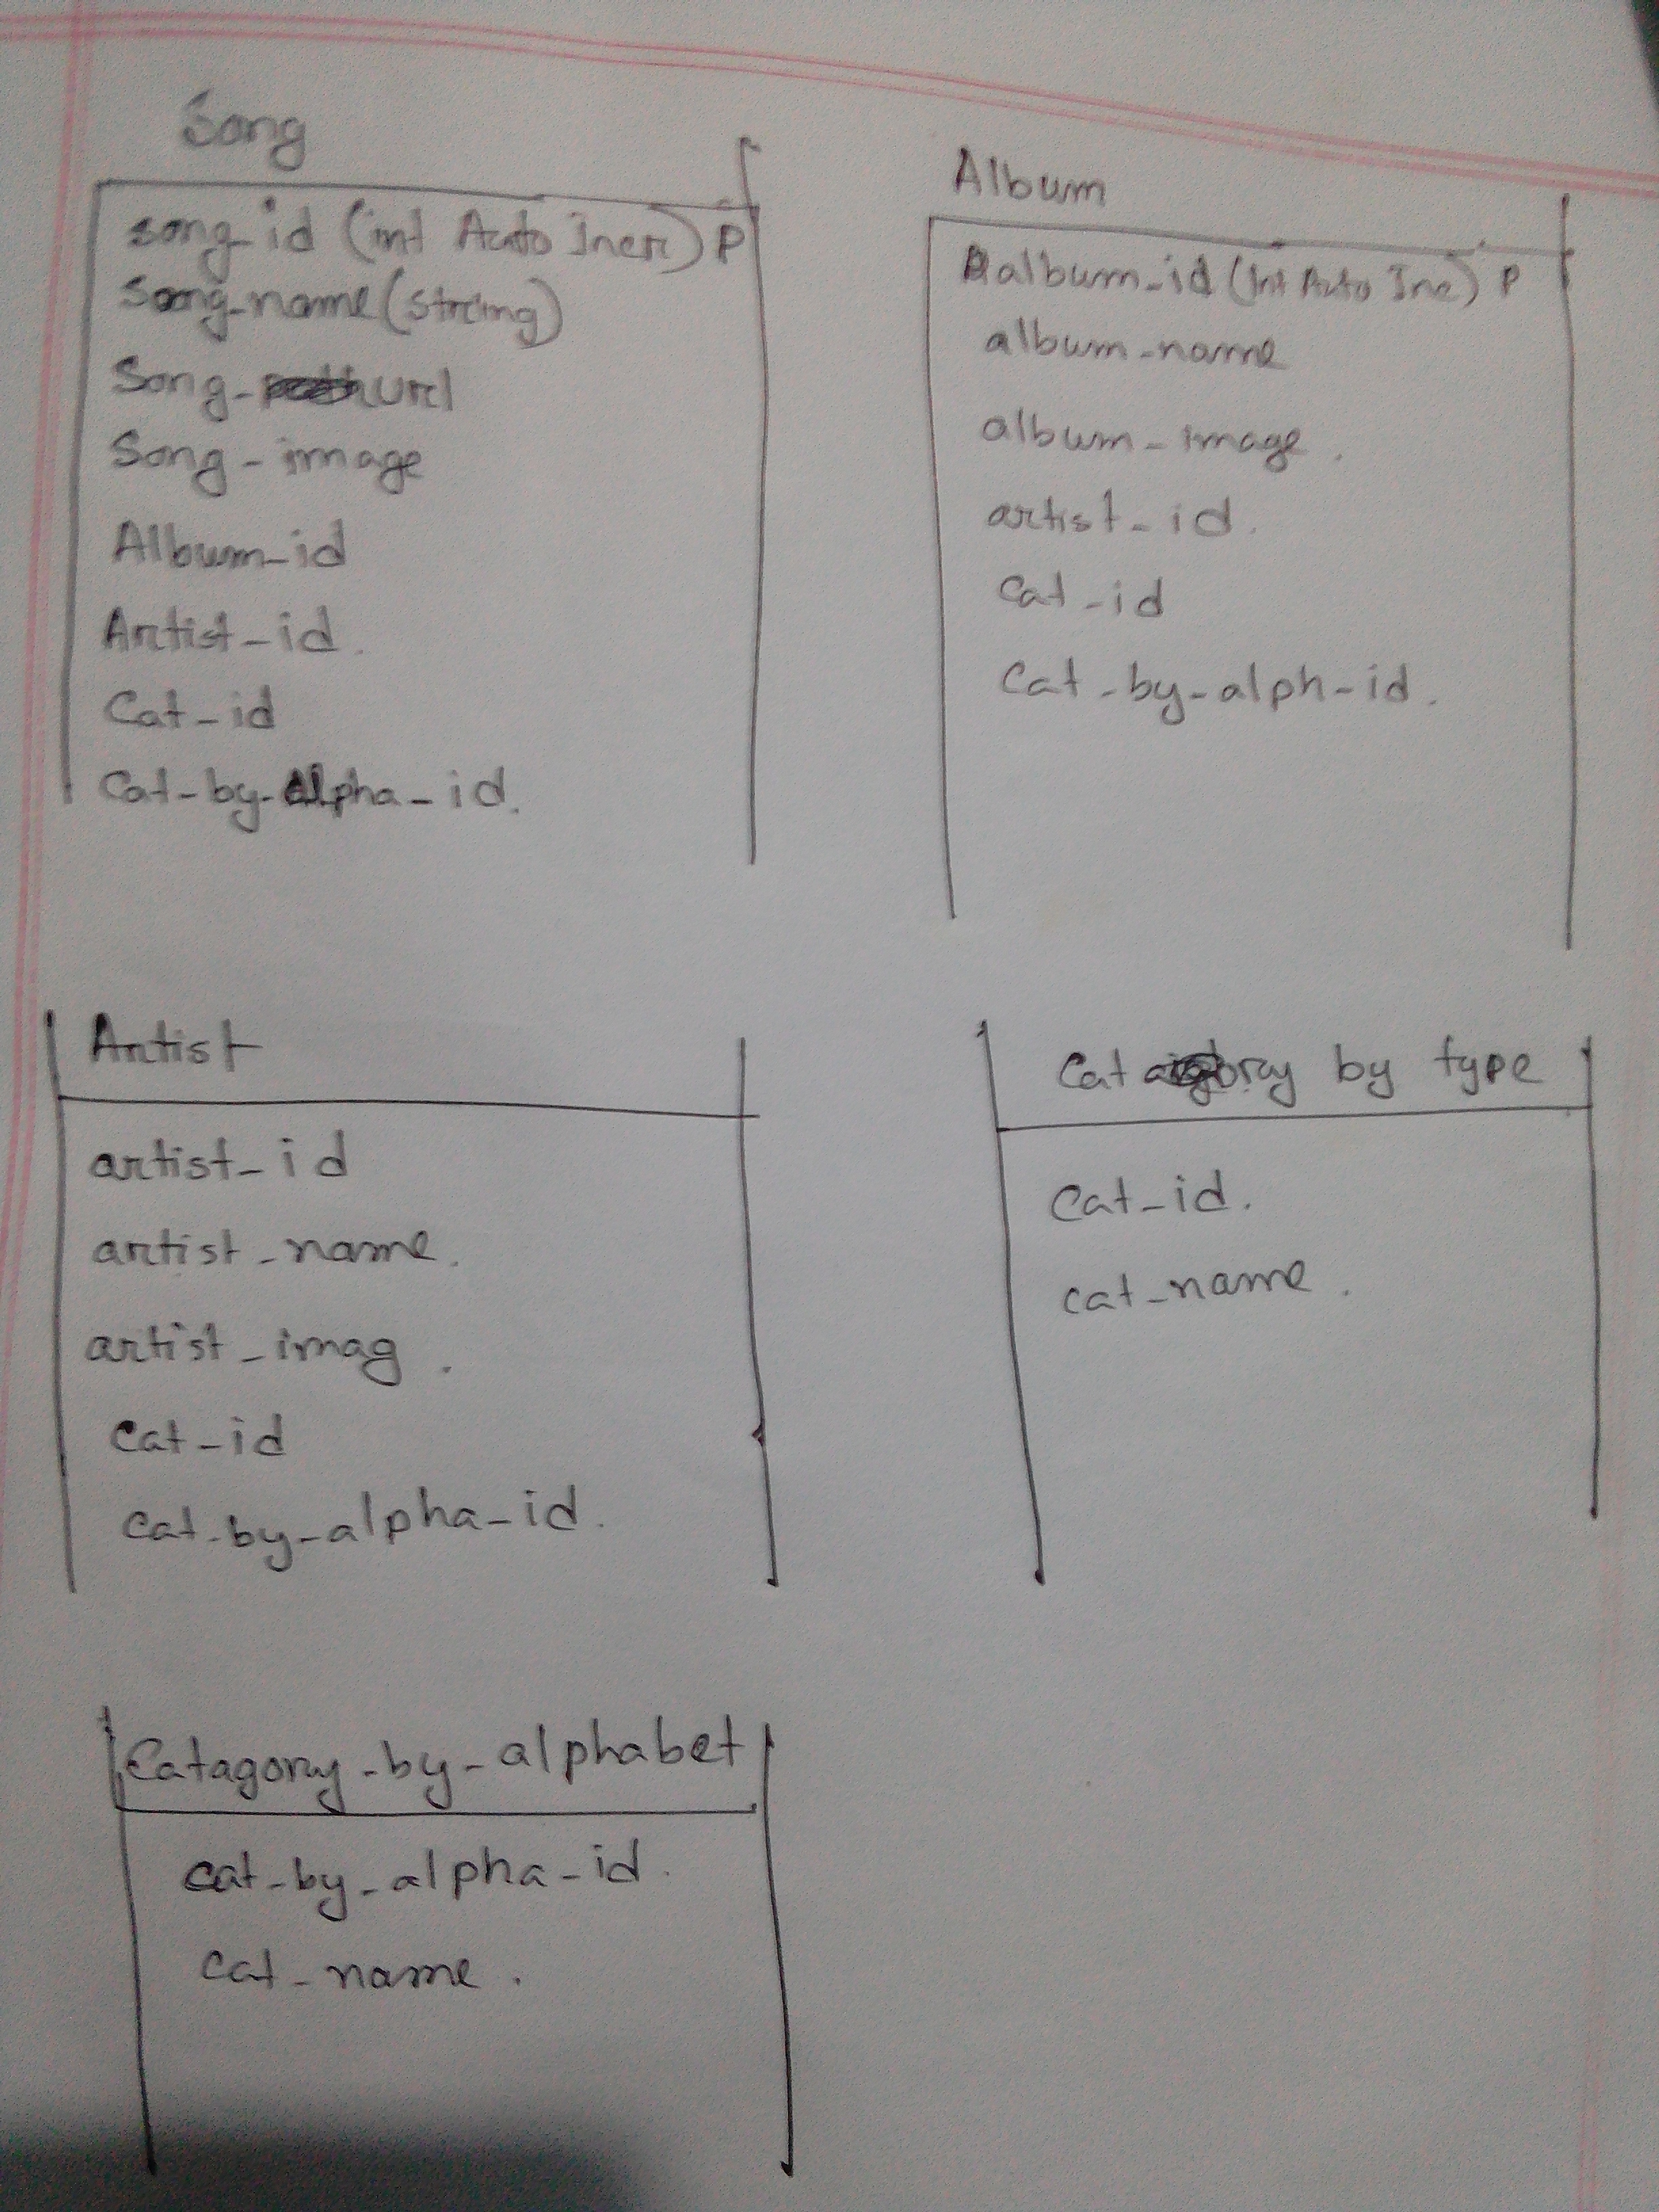 Song
song_id (int Auto Incr) P
Song_name (string)
Song_url
Song_image
Album_id
Artist_id.
Cat_id
Cat_by_Alpha_id.
Album
album_id (Int Auto Inc) P
album_name
album_image.
artist_id.
Cat_id
Cat_by_alph_id.
Artist
artist_id
artist_name.
artist_imag.
Cat_id
Cat_by_alpha_id.
Catagory by type
Cat_id.
cat_name.
Catagory_by_alphabet
cat_by_alpha_id.
cat_name.